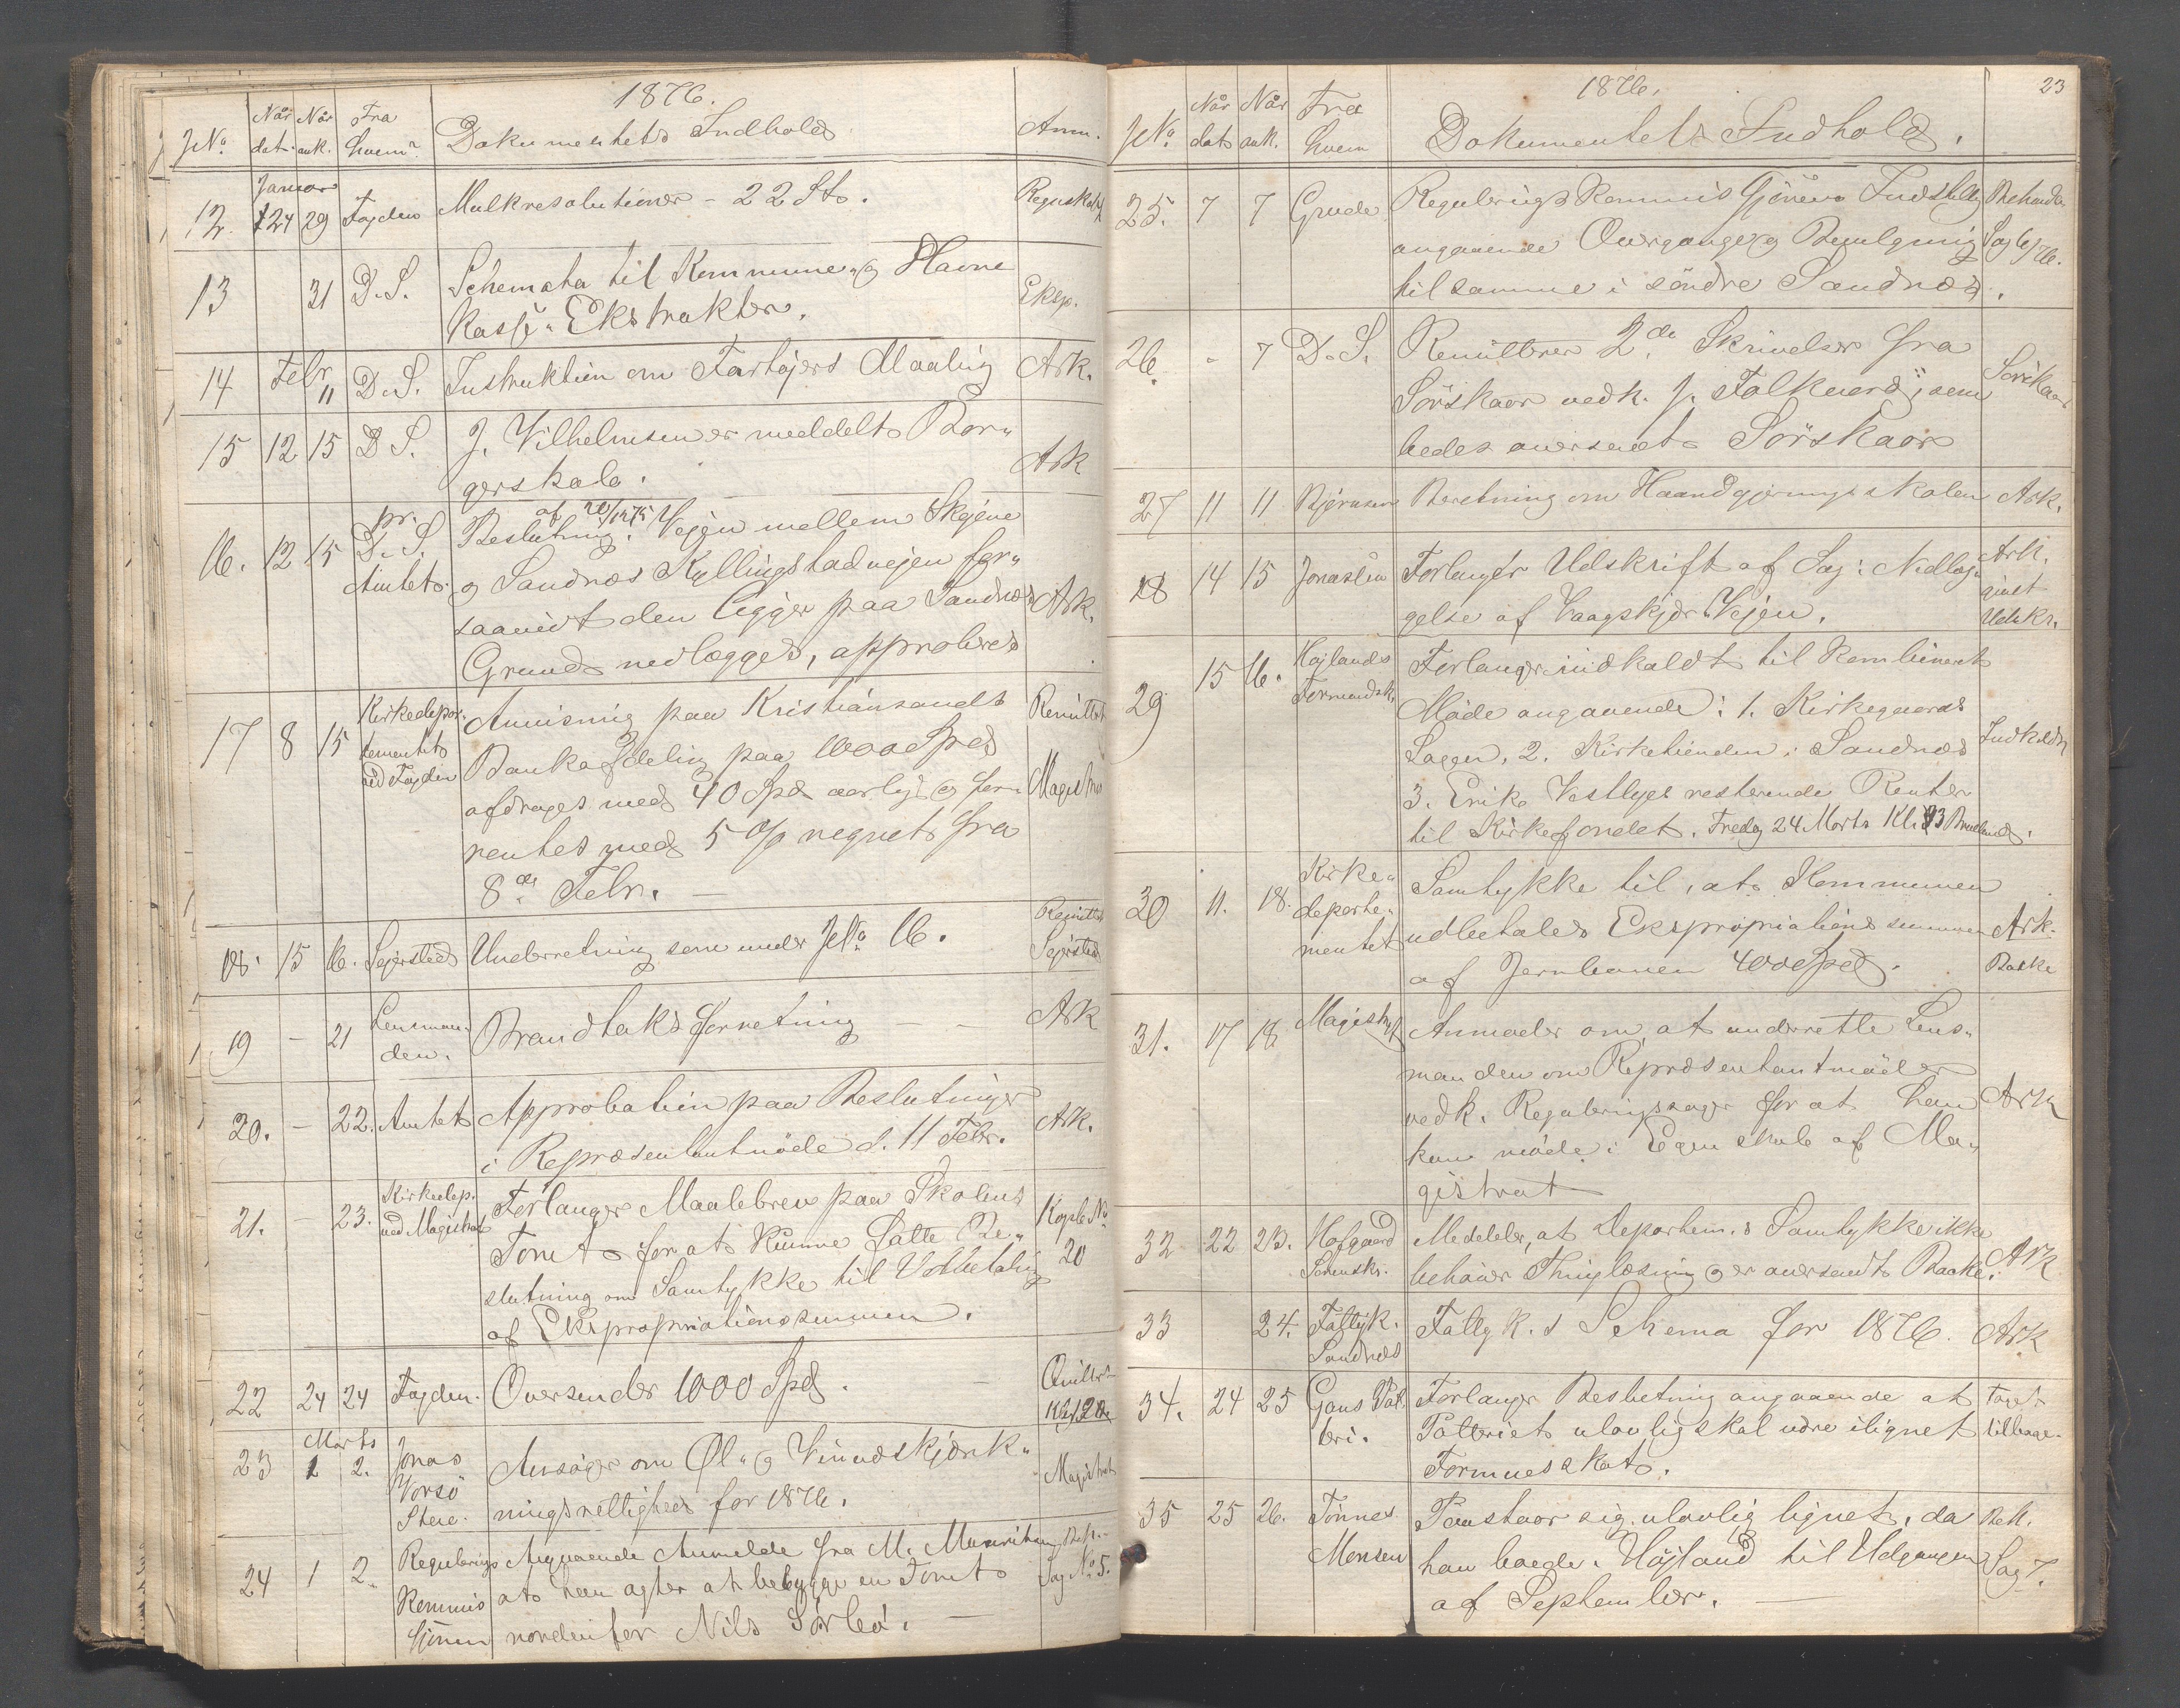 1876.
JNo. Når dat. Når ank. Fra hvem? Dokumentets Indhold Anm.
Januar
12. 24 29 Fogden Mulkresolutioner - 22 St. Regnskabsf.
13 31 D. S. Schemata til Kommune- og Havne
Kasse- Ekstrakter. Eksp.
14 Febr. 11 D. S. Instruktion om Fartøjers Maaling Ark.
15 12 15 D S. J. Vilhelmsen er meddelt Bor-
gerskab. Ark
16. 12 15 pr. D. S. Amtet. Beslutning af 20/12 75: Vejen mellem Skejene
og Sandnæs Kyllingstadvejen for-
saavidt den ligger paa Sandnæs Ark.
Grund nedlægges, approberes
17 8 15 Kirkedepar-
tementet
ved Fogden
Anvisning paa Kristianssands Remitt.
Bankafdeling paa 1000 Spd
afdrages med 40 Spd aarlig og for- Magistr.
rentes med 5 % regnet fra
8de Febr. —
18. 15 16. Sejersted Underretning som under JNo 16. Remitt. Sejersted
19 - 21 Lensman-
den. Brandtaksforretning - - Ark
20. - 22. Amtet Approbation paa Beslutninger
i Repræsentantmöde d. 11 Febr. Ark.
21. - 23. Kirkedep.
ved Magistrat
Forlanger Maalebrev paa Skolens Kopib. No 20
Tomt for at kunne fatte Be-
slutning om Samtykke til Udbetaling
af Ekspropriationssummen.
22 24 24 Fogden. Oversender 1000 Spd. - Qvitter.
23 Marts 1 2. Jonas
Vorsö
Stene.
Ansöger om Øl- og Vinudskjænk-
ningsrettighed for 1876. Magistrat
24 1 2. Regulerings
Kommis
Gjören
Angaaende Anmelde fra M. Mauritzen Beh.
at han agter at bebygge en Tomt Sag No 5.
nordenfor Nils Sörbö. —
1876. 23
JNo. Når dat Når ank. Fra hvem Dokumentets Indhold.
25. 7 7 Grude Regulerings Kommis Gjörens Indstilling Behandl.
angaaende Overgange og Bevilgning Sag 6/76.
til samme i söndre Sandnæs.
26. - 7 D. S. Remitterer 2de Skrivelser fra
Sörskaar vedk. J. Falkeaard, som Sörskaar
bedes oversendt Sörskaar
27 11 11 Björnsen Beretning om Haandgjerningsskolen Ark.
28 14 15 Jonasen Forlanger Udskrift af Sag: Nedlæg- Ark.
gelse af Vaagskjær Vejen. givet
Udskr.
29 15 16. Højlands
Formandsk.
Forlanger indkaldt til kombineret
Möde angaaende: 1. Kirkegaards
Sagen. 2. Kirketienden i Sandnæs Indkaldt
3. Erik Vestlyes resterende Renter
til Kirkefondet. Fredag 24 Marts Kl. 3
30 11. 18. Kirke-
departe-
mentet
Samtykke til, at Kommunen
udbetales Ekspropriationssummen Ark.
af Jernbanen 4000 Spd. Backe
31. 17 18 Magistrat Anmoder om, at underrette Lens-
manden om Repræsentantmöder
vedk. Reguleringssager for at han Ark
kan möde i Egenskab af Ma-
gistrat
32 22 23. Hofgaard
Sorenskr.
Meddeler, at Departem.s Samtykke ikke
behöver Thinglæsning og er oversendt Backe. Ark
33 24. Fattigk.
Sandnæs
Fattigk.s Schema for 1876. Ark
34. 24 25 Gans Pot-
teri.
Forlanger Beslutning angaaende at Taget
Potteriet ulovlig skal være ilignet tilbage.
Formuesskat.
35 25 26. Tönnes
Monsen
Paastaar sig ulovlig lignet, da Beh.
han boede i Höjland til Udgangen Sag 7.
af September. —